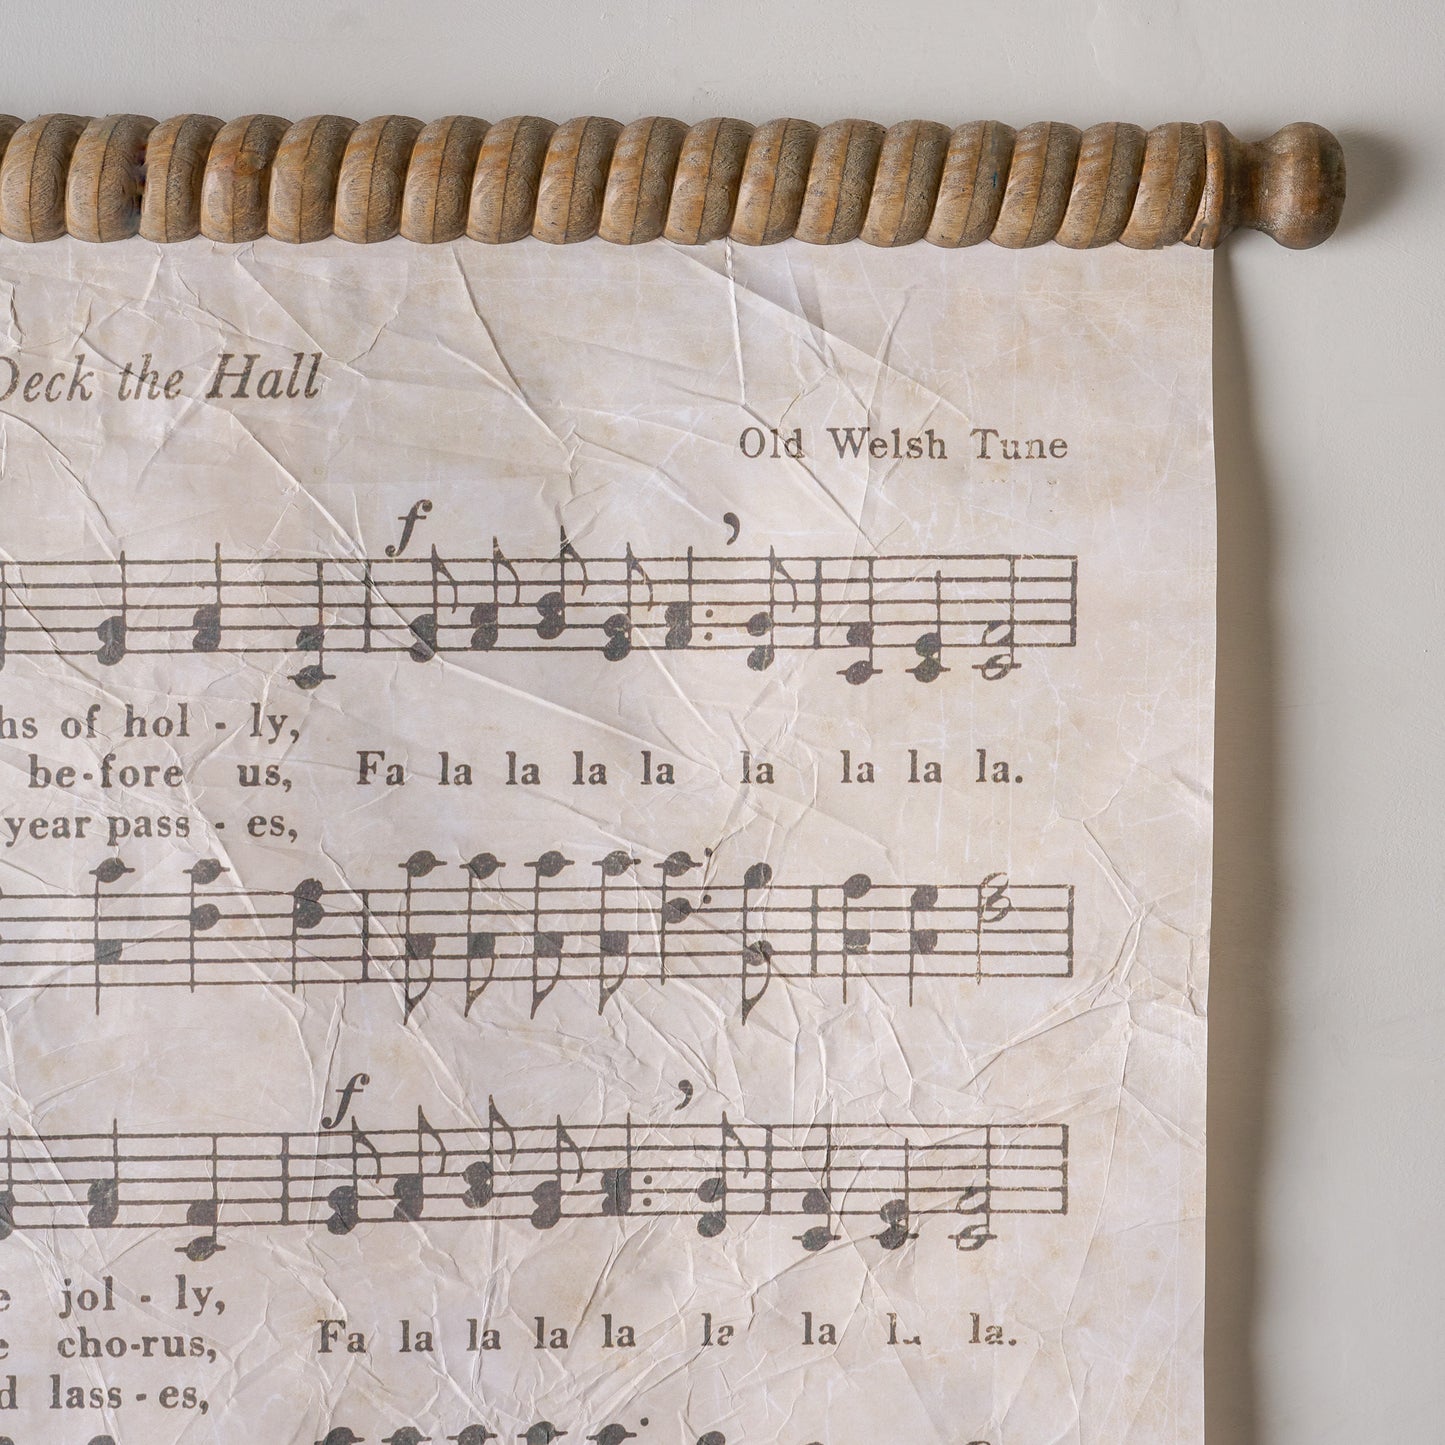 Deck the Hall
Old Welsh Tune
f
of hol - ly,
be-fore us,
Fa la la la la la la la la.
year pass - es,
f
jol - ly,
cho-rus,
Fa la la la la la la la la.
lass - es,